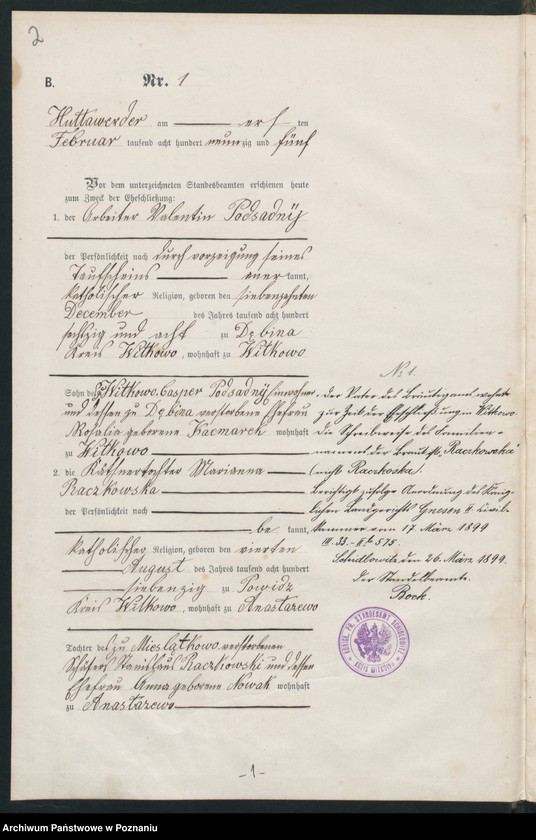 2
B. Nr. 1
Huttawerder am ersten
Februar tausend acht hundert neunzig und fünf
Vor dem unterzeichneten Standesbeamten erschienen heute
zum Zweck der Eheschließung:
1. der Arbeiter Valentin Podsadnÿ
der Persönlichkeit nach durch vorzeigung seines
Taufscheins anerkannt,
katholischer Religion, geboren den siebenzehnten
December des Jahres tausend acht hundert
sechzig und acht zu Dębina
Kreis Witkowo, wohnhaft zu Witkowo
Sohn des Witkowo Casper Podsadnÿ Einwohner
und dessen zu Dębina verstorbene Ehefrau
Rosalia geborene Kacmarek wohnhaft
zu Witkowo
2. die Käthnertochter Marianna
Raczkowska
der Persönlichkeit nach
be kannt,
katholischer Religion, geboren den vierten
August des Jahres tausend acht hundert
siebenzig zu Powidz
Kreis Witkowo, wohnhaft zu Anastazewo
Tochter des zu Mieslątkowo verstorbenen
Schäfers Stanislaus Raczkowski und dessen
Ehefrau Anna geborene Nowak wohnhaft
zu Anastazewo
N: 1.
der Vater des Bräutigams wohnte
zur Zeit der Eheschließung in Witkowo
die Schreibweise des
namens der Braut ist "Raczkowska"
(nicht Raczkoska).
Berichtigt zufolge Anordnung des König-
lichen Landgerichts Gnesen II Civil-
kammer vom 17. März 1899
III. 33. 575.
den 26. März 1899.
Der Standesbeamte.
Bock.
KÖNIGL. PR. STANDESAMT
KREIS WITKOWO
- 1 -
Archiwum Państwowe w Poznaniu